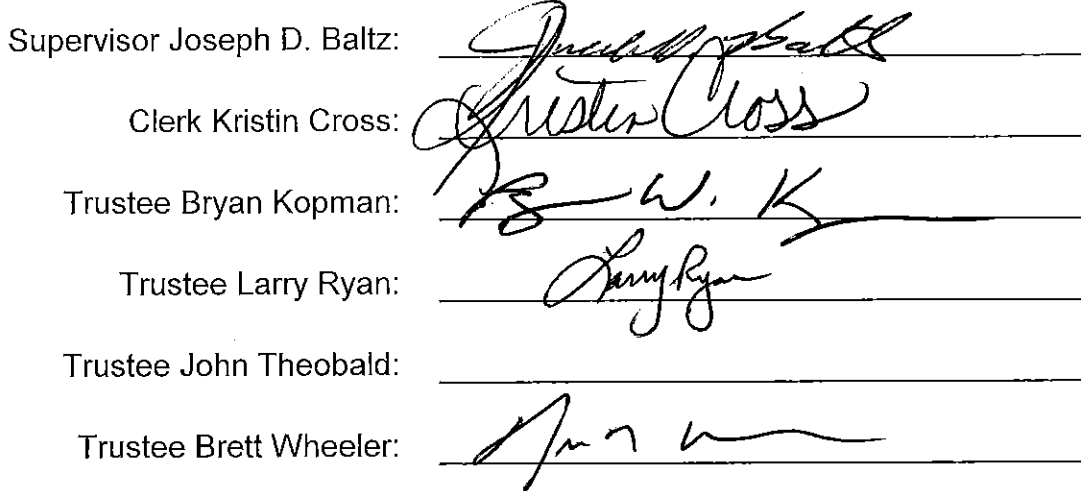 Supervisor Joseph D. Baltz:
Clerk Kristin Cross: Kristin Cross
Trustee Bryan Kopman:
Trustee Larry Ryan: Larry Ryan
Trustee John Theobald:
Trustee Brett Wheeler: